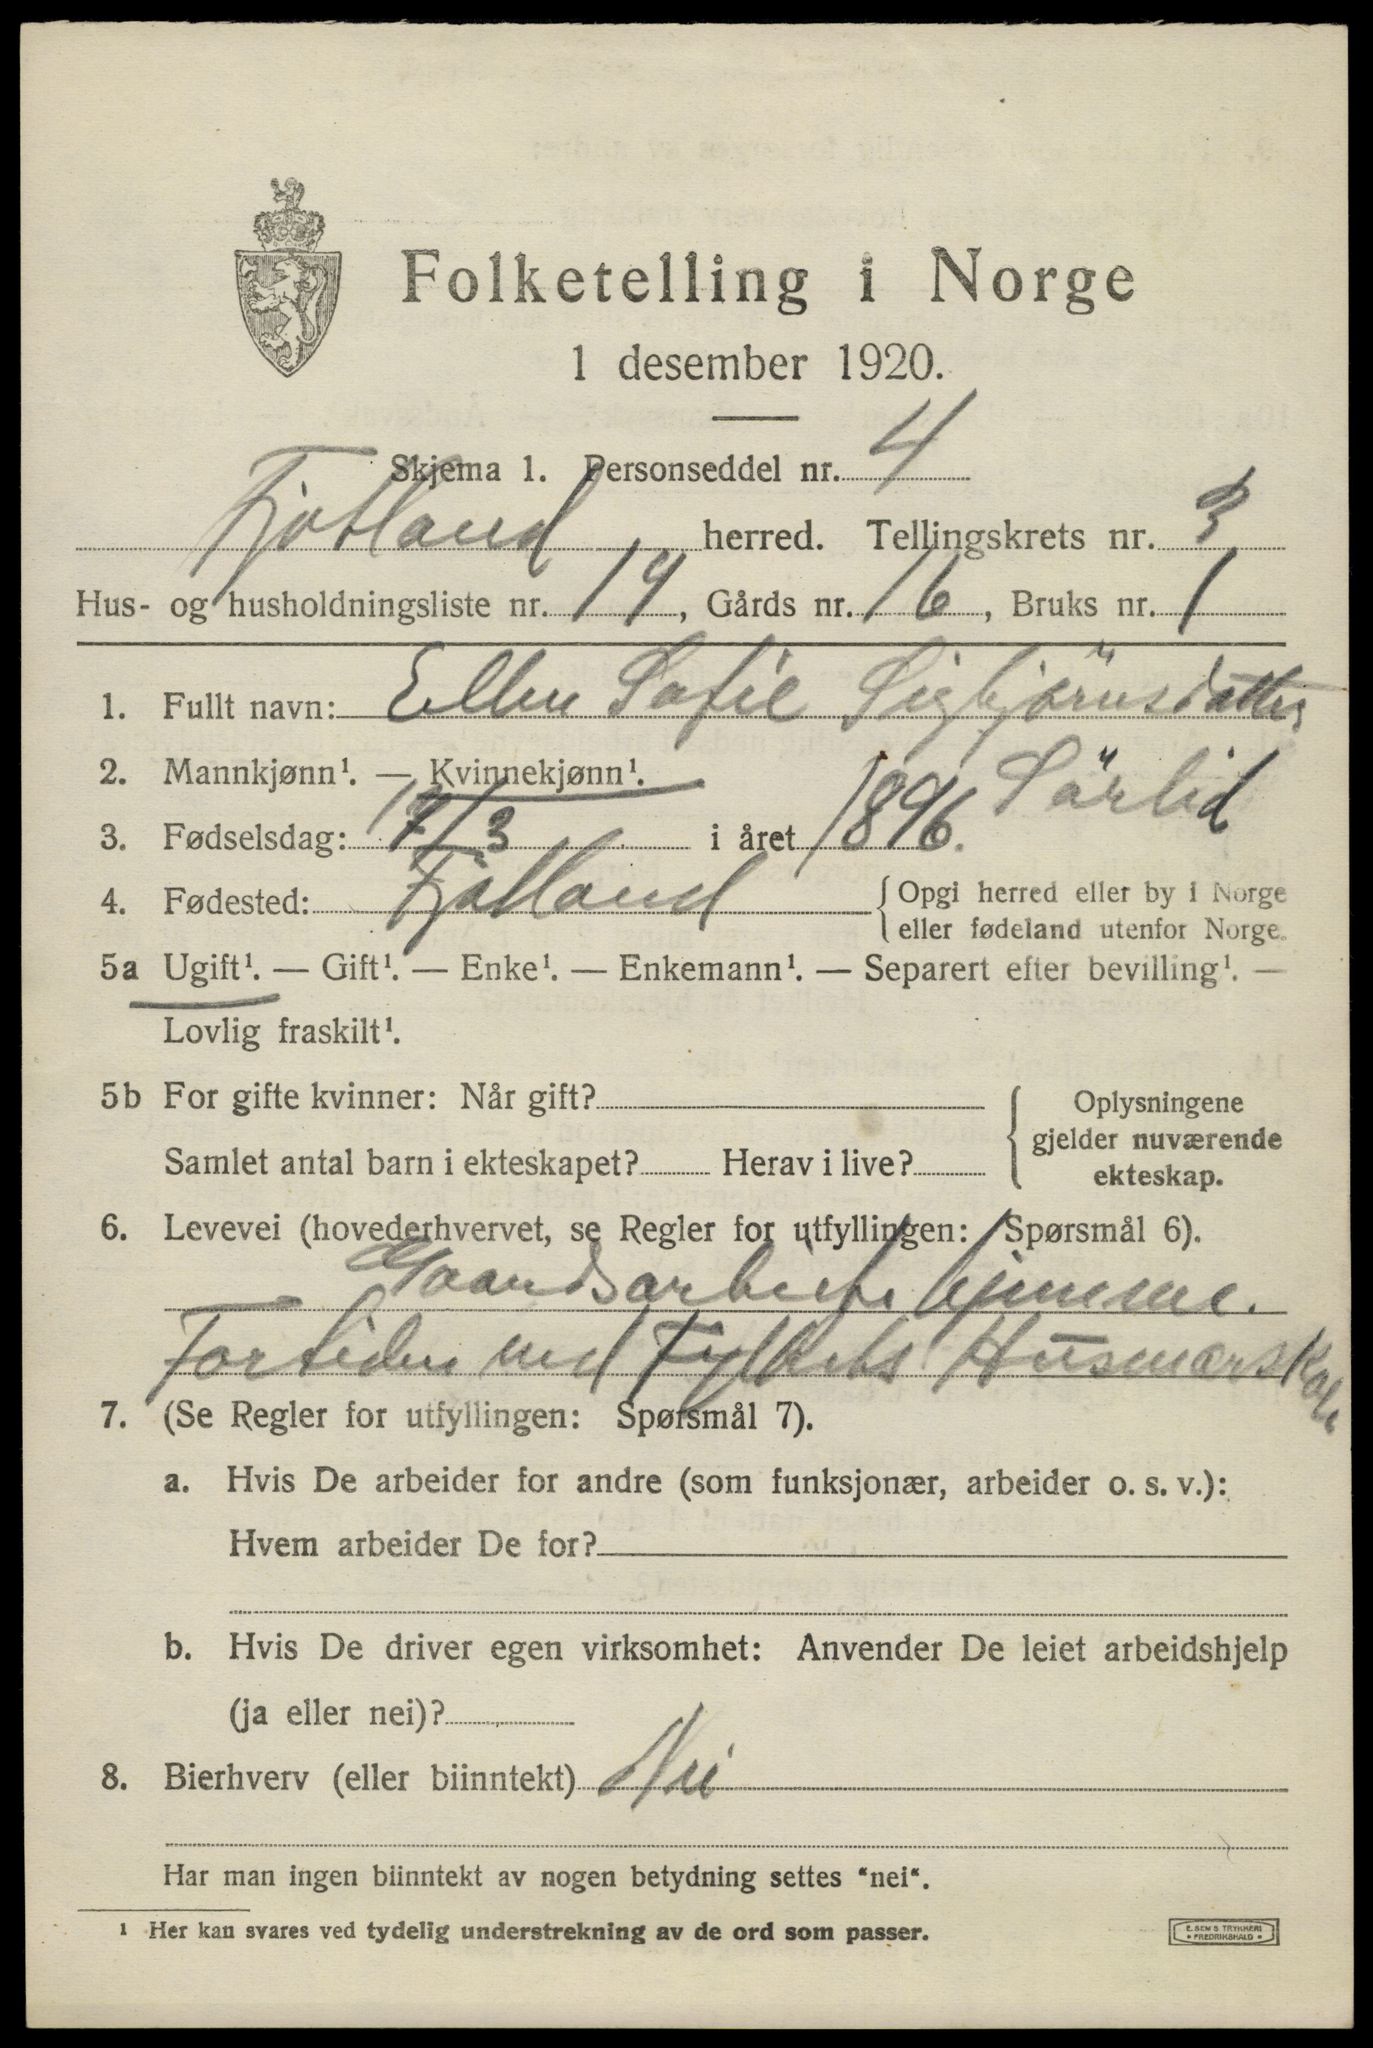 Folketelling i Norge
1 desember 1920.
Skjema 1. Personseddel nr. 4
Fjotland herred. Tellingskrets nr. 3
Hus- og husholdningsliste nr. 14, Gårds nr. 16, Bruks nr. 1
1. Fullt navn: Ellen Sofie Sigbjörnsdatter
Sörlid
2. Mannkjønn¹. — Kvinnekjønn¹.
3. Fødselsdag: 17/3 i året 1896.
4. Fødested: Fjotland {Opgi herred eller by i Norge
eller fødeland utenfor Norge.
5a Ugift¹. — Gift¹. — Enke¹. — Enkemann¹. — Separert efter bevilling¹. —
Lovlig fraskilt¹.
5b For gifte kvinner: Når gift? Oplysningene
gjelder nuværende
Samlet antal barn i ekteskapet? Herav i live? ekteskap.
6. Levevei (hovederhvervet, se Regler for utfyllingen: Spørsmål 6).
Gaardsarbeide hjemme.
Fortiden ved Fylkets Husmorskole
7. (Se Regler for utfyllingen: Spørsmål 7).
a. Hvis De arbeider for andre (som funksjonær, arbeider o. s. v.):
Hvem arbeider De for?
b. Hvis De driver egen virksomhet: Anvender De leiet arbeidshjelp
(ja eller nei)?
8. Bierhverv (eller biinntekt) Nei
Har man ingen biinntekt av nogen betydning settes "nei".
¹ Her kan svares ved tydelig understrekning av de ord som passer.
E. SEM'S TRYKKERI
• FREDRIKSHALD •